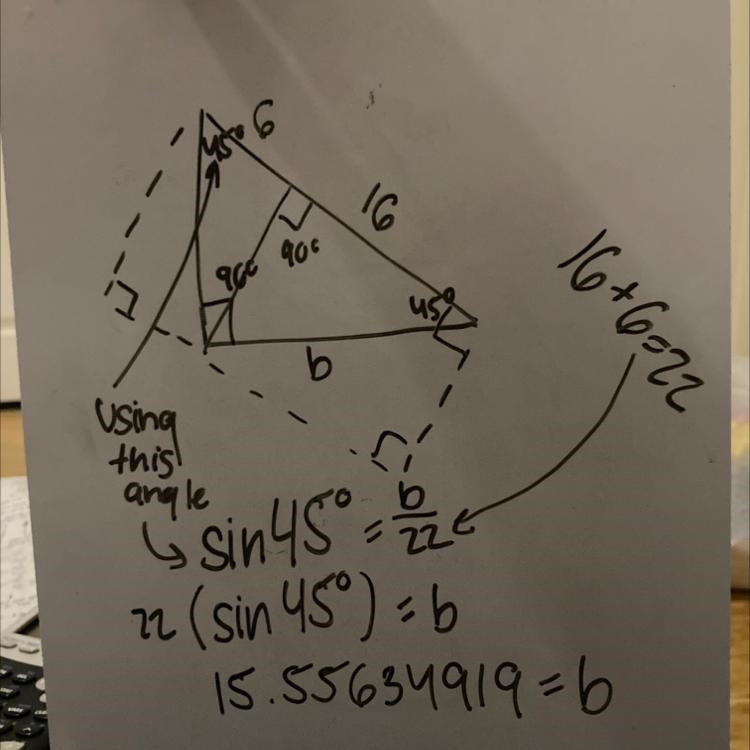 45° 6
16
90°
90°
45°
b
16+6=22
using
this
angle
sin45° = b/22
22 (sin 45°) = b
15.55634919 = b